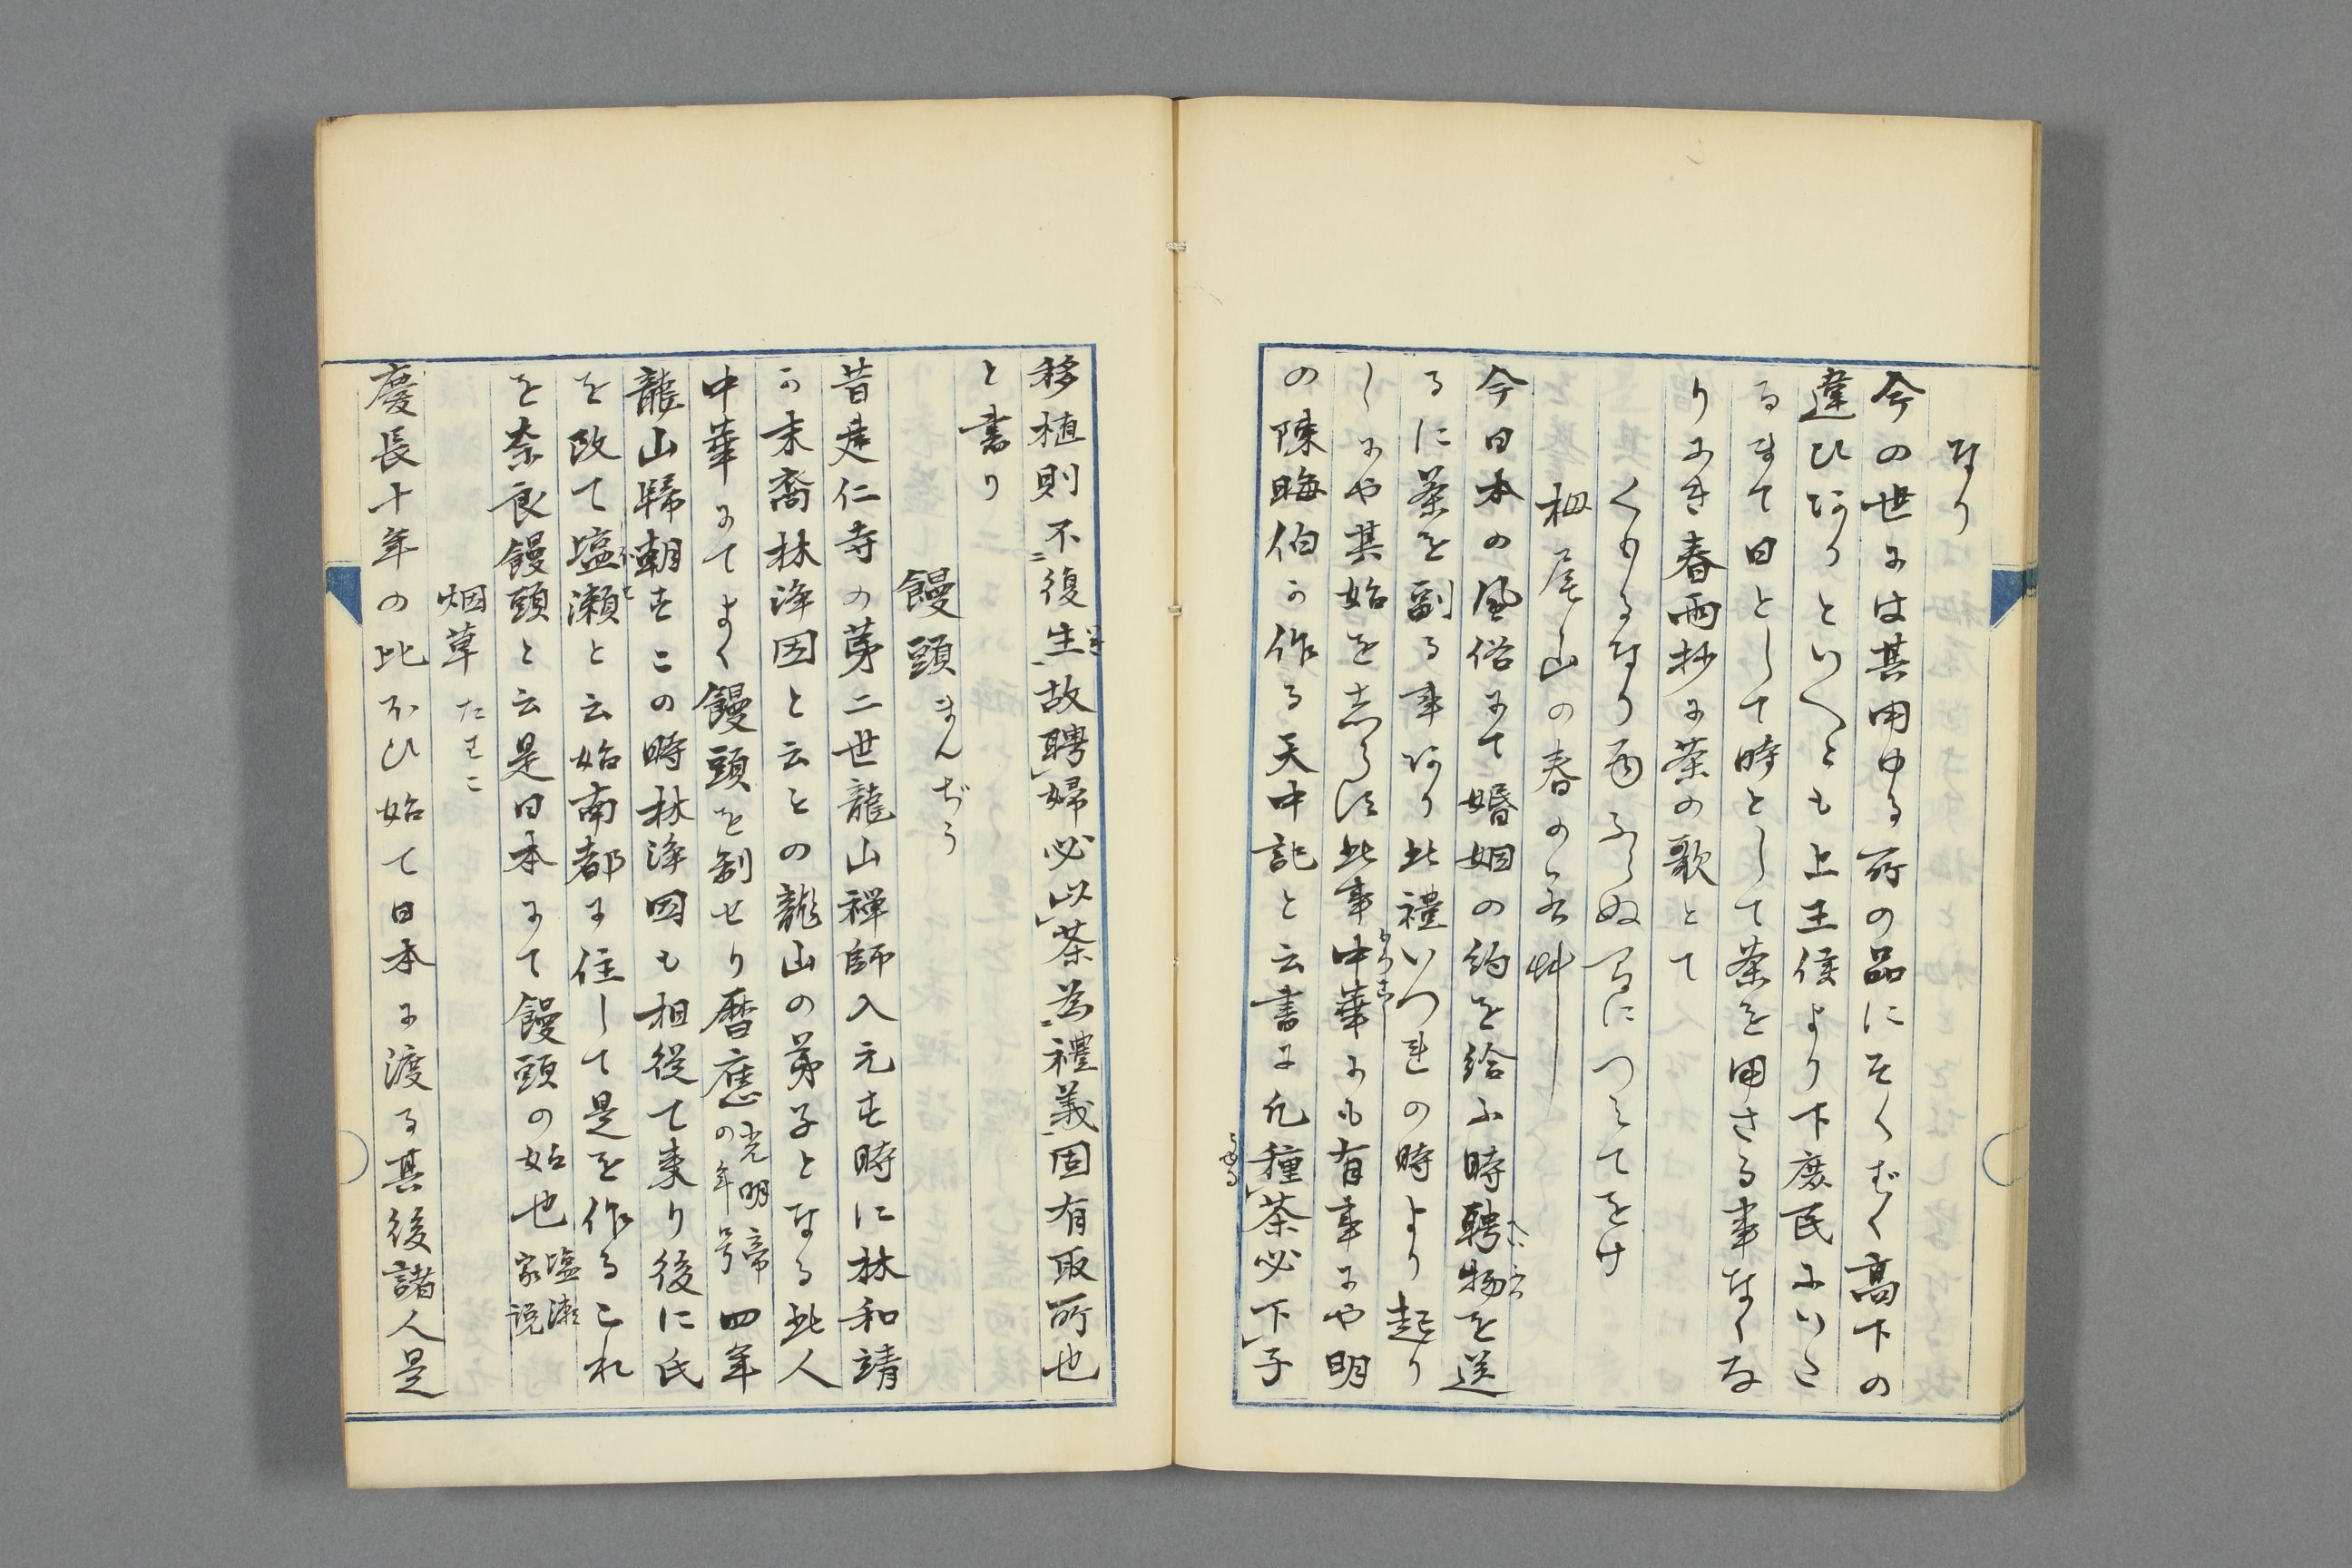 なり
今の世には其用ゆる所の品にそくばく高下の
違ひありといへとも上王侯より下庶民にいた
るまて日として時として茶を用さる事なくな
りにき春雨抄に茶の歌とて
くもるなり雨ふらぬ間につみてをけ
栂尾山の春の若艸
今日本の風俗にて婚姻の約を給ふ時聘物を送
るに茶を副る事あり此禮いつれの時より起り
しにや其始を志らす此事中華にも有事にや明
の陳晦伯か作る天中記と云書に凡種茶必下子
移植則不復生故聘婦必以茶為禮義固有取所也
と書り
饅頭まんぢう
昔建仁寺の苐二世龍山禅師入元す時に林和靖
か末裔林浄因と云もの龍山の弟子となる此人
中華にてよく饅頭を制せり暦應光明帝の年号四年
龍山歸朝すこの時林浄因も相從て来り後に氏
を改て塩瀬と云始南都に住して是を作るこれ
を奈良饅頭と云是日本にて饅頭の始也塩瀬家説
烟草たはこ
慶長十年の比ほひ始て日本に渡る其後諸人是